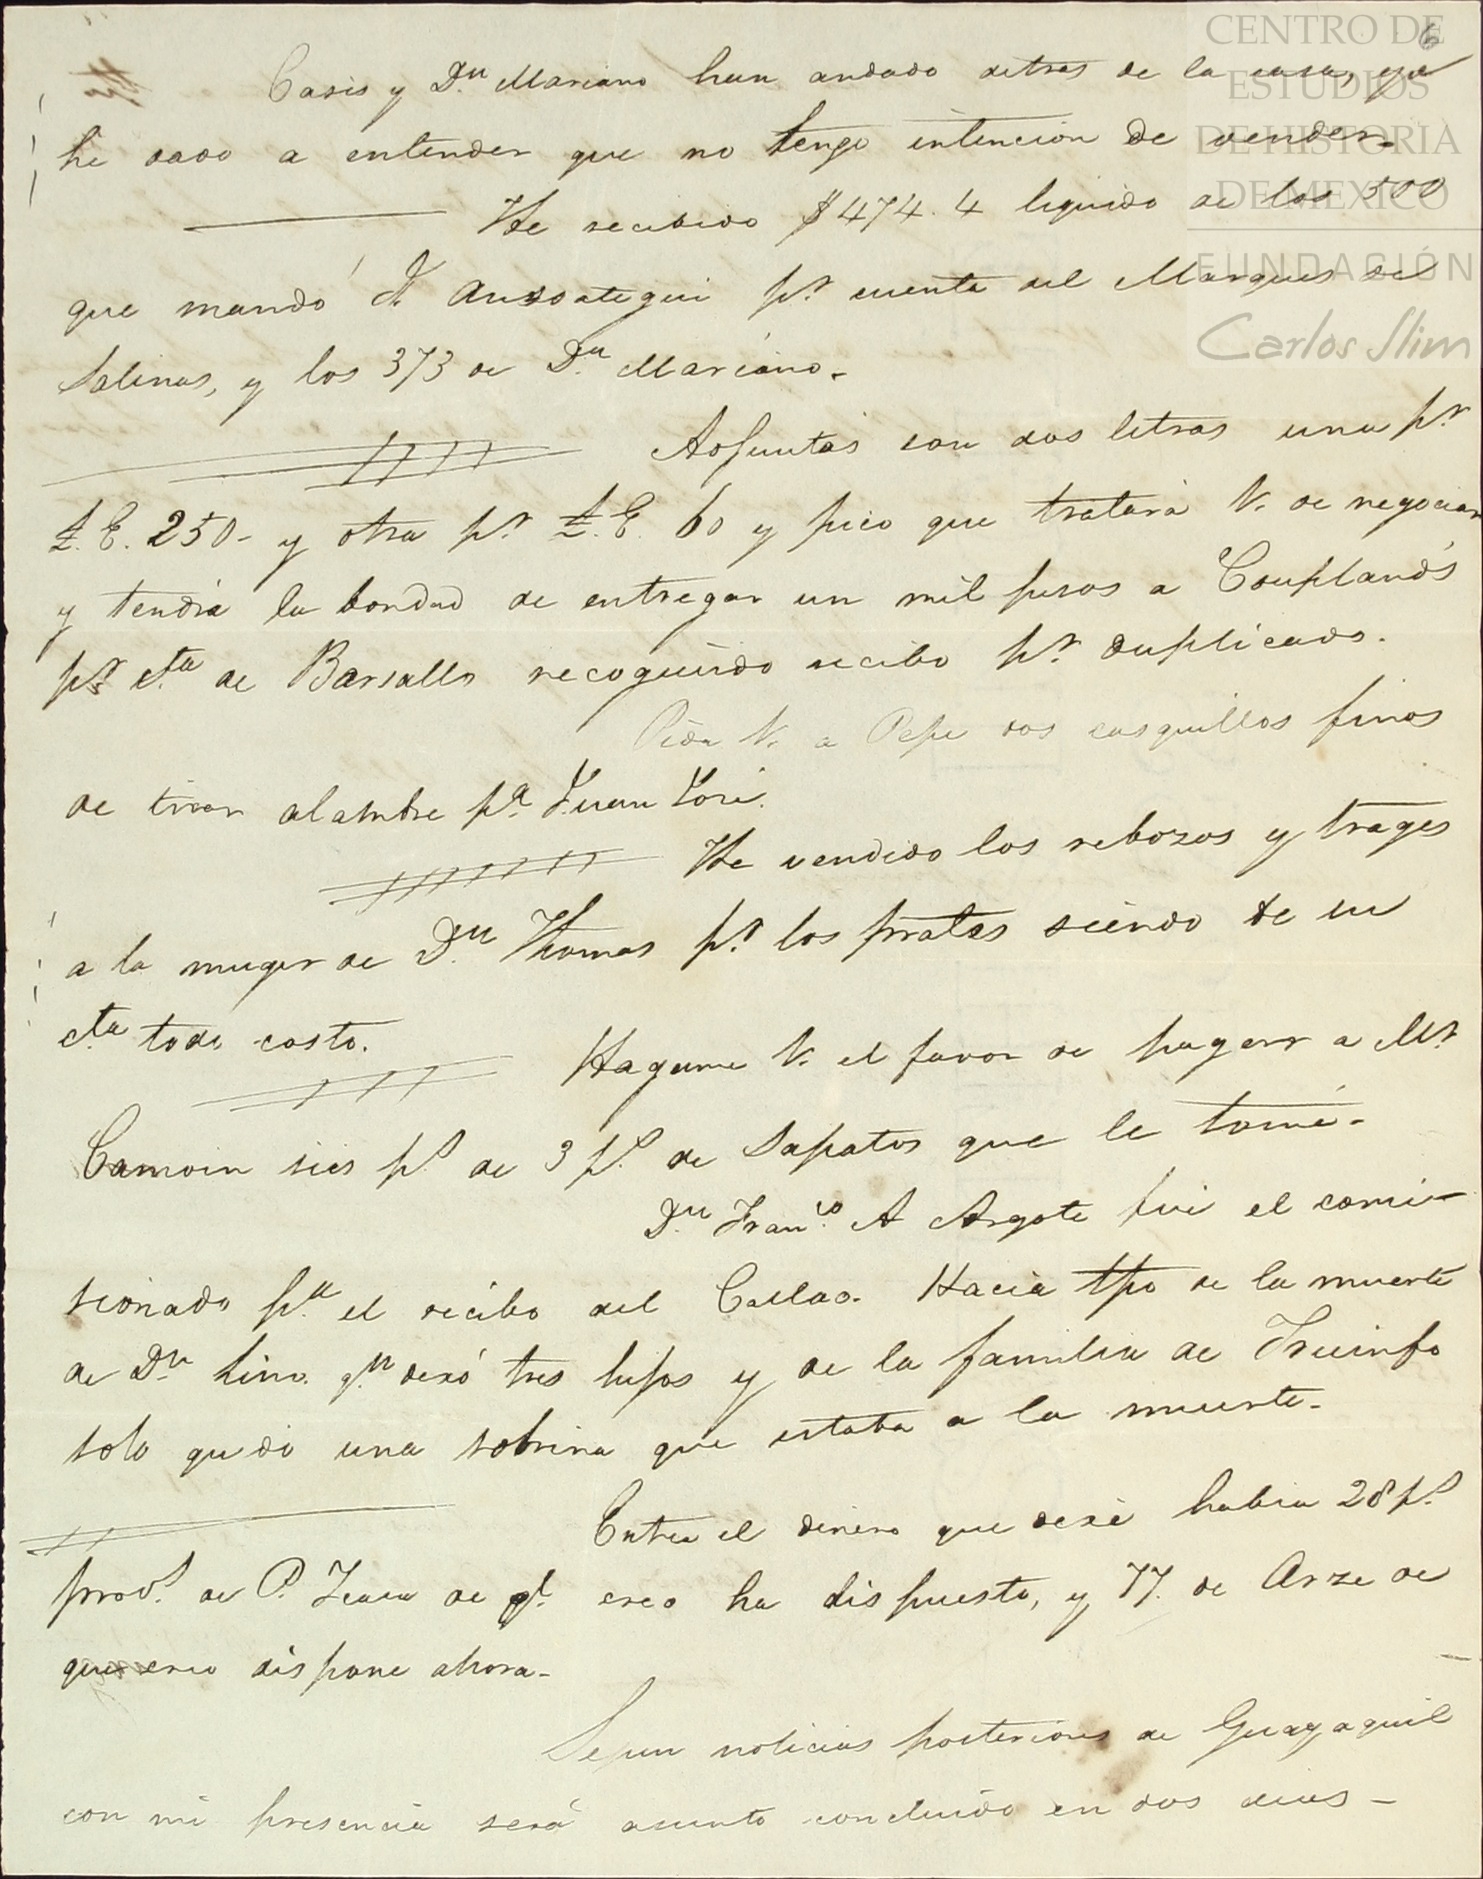 6
CENTRO DE
ESTUDIOS
DE HISTORIA
DE MEXICO
FUNDACIÓN
Carlos Slim
Casis y Dn. Mariano han andado detras de la casa, y
he dado a entender que no tengo intencion de vender.
He recibido $474.4 liquido de los 500
que mandó Anzoategui pr. cuenta del Marques de
Salinas, y los 373 de Dn. Mariano.
Adjuntas son dos letras una pr.
£.E. 250- y otra pr. £.E. 60 y pico que tratará V. de negociar
y tendrá la bondad de entregar un mil pesos a Coupland's
pr. cta de Barsallo recoguiendo recibo pr. duplicado.
Pida V. a Pepe dos casquillos finos
de tirar alambre pa. Juan José.
He vendido los rebozos y trages
a la muger de Dn. Thomas pr. los pratas siendo de su
cta todo costo.
Hagame V. el favor de pagar a Mr.
Camoin seis ps. de 3 ps. de Sapatos que le tomé.
Dn. Franco. A Argote fue el comi-
sionado pa. el recibo del Callao. Hacia tpo de la muerte
de Dn. Lino. qn. dexó tres hijos y de la familia de Treinfo
solo quedo una sobrina que estaba a la muerte.
Entre el dinero que dexé habia 28 ps.
provs. de P. de ql. creo ha dispuesto, y 77. de Arze de
que creo dispone ahora.
Segun noticias posteriores de Guayaquil
con mi presencia será asunto concluido en dos dias -